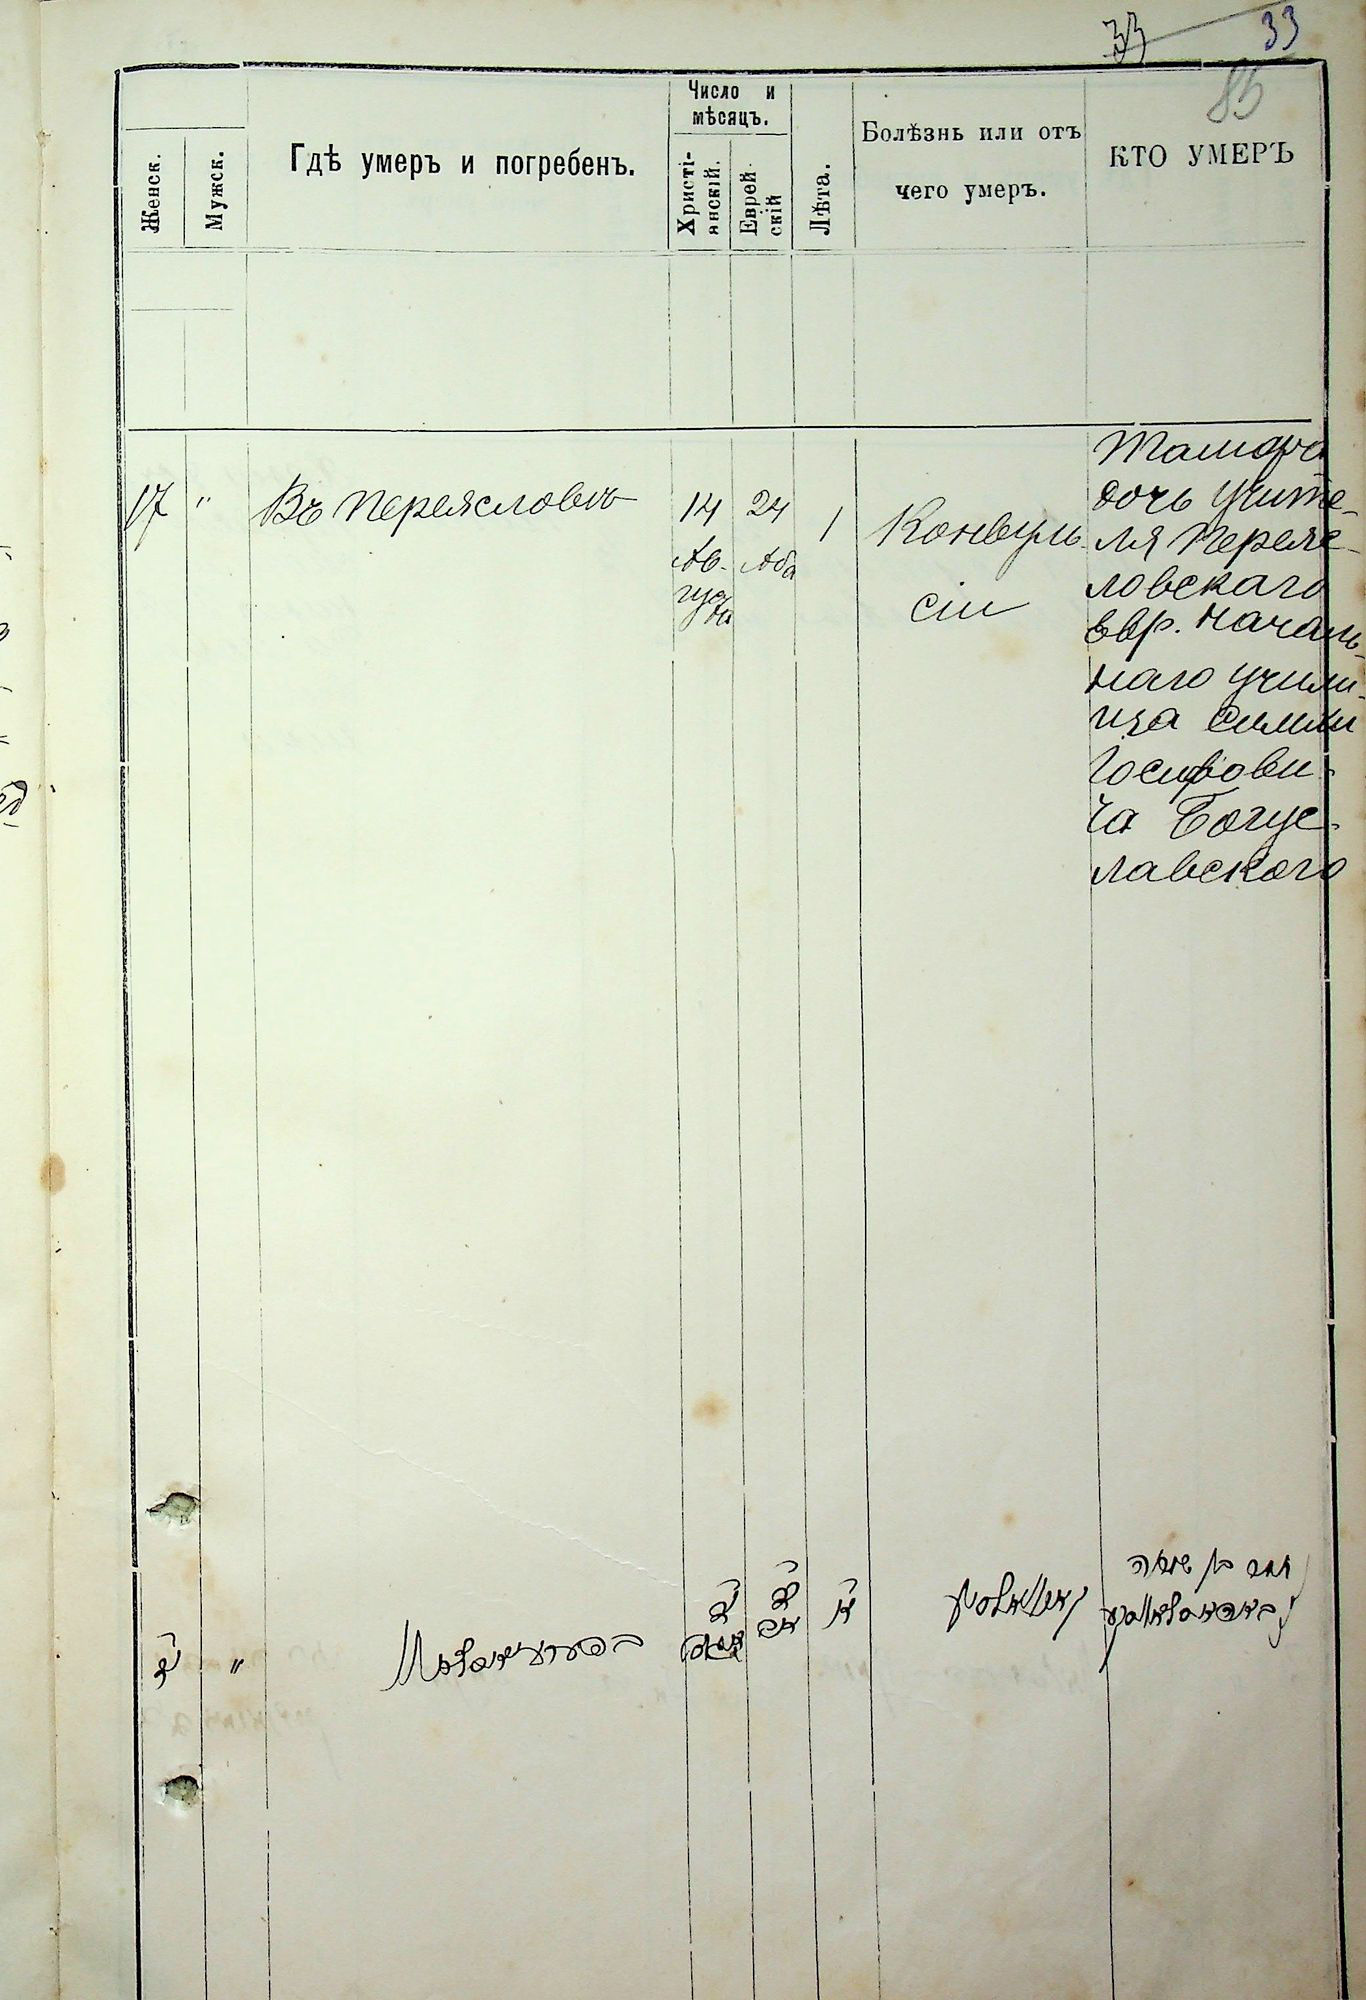 33 33
85
Женск.
Мужск.
Гдѣ умеръ и погребенъ.
Число и
мѣсяцъ.
Христі-
анскій.
Еврей-
скій
Лѣта.
Болѣзнь или отъ
чего умеръ.
КТО УМЕРЪ
17
"
Въ Переясловѣ
14
Ав-
густа
24
Аба
1
Конвуль-
сіи
Тамара
дочь учите-
ля Переяс-
ловскаго
евр. началь-
наго учили-
ща Симхи
Іосифови-
ча Богус-
лавского
"